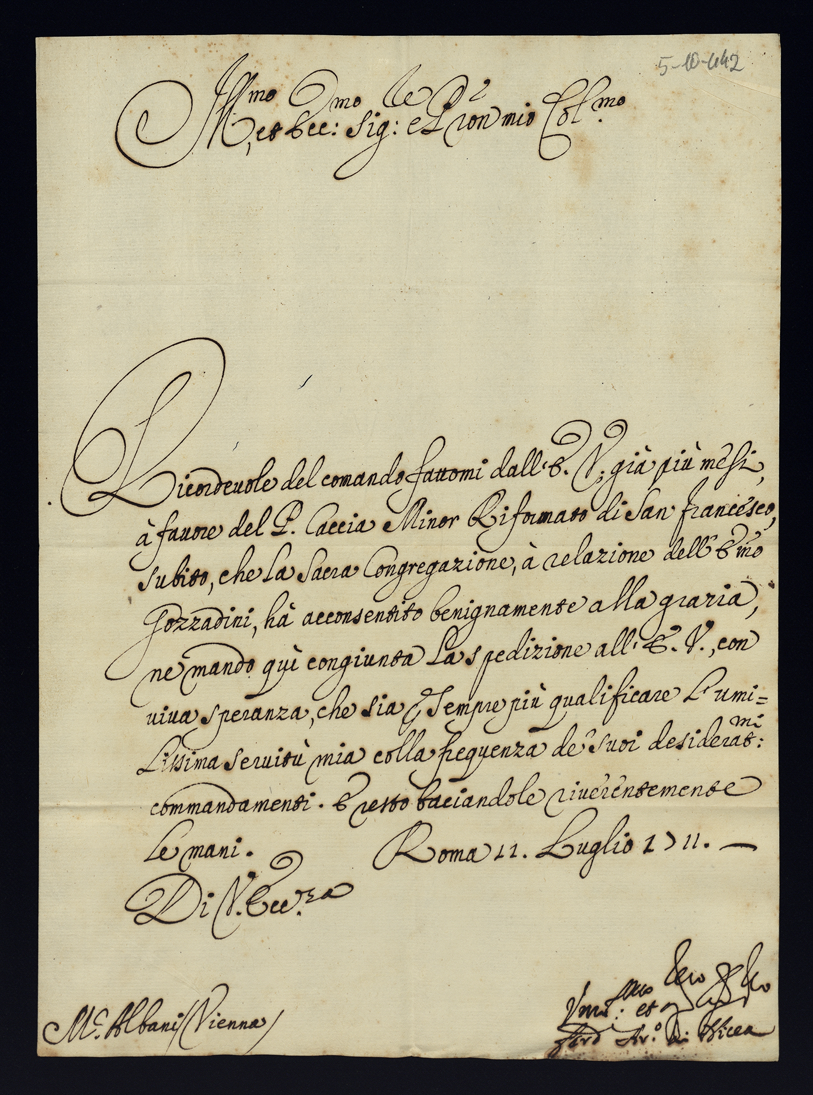 5-10-442
Ill.mo et Ecc: Sig: e Pron mio Col.mo
Ricordevole del comando fattomi dall'E. V. già più mesi,
à favore del P. Caccia Minor Riformato di San Francesco,
subito, che la Sacra Congregazione, à relazione dell'Emo
Gozzadini, hà acconsentito benignamente alla grazia,
ne mando quì congiunta la spedizione all'E. V., con
viva speranza, che sia sempre più qualificare l'umi=
lissima servitù mia colla frequenza de' suoi desiderat:mi
commandamenti. E resto baciandole riverentemente
le mani. Roma 11. Luglio 1711.
Di V. Ecc.za
Mr. Albani / Vienna /
Vmo: et
Ferd Ar.o di Nicea